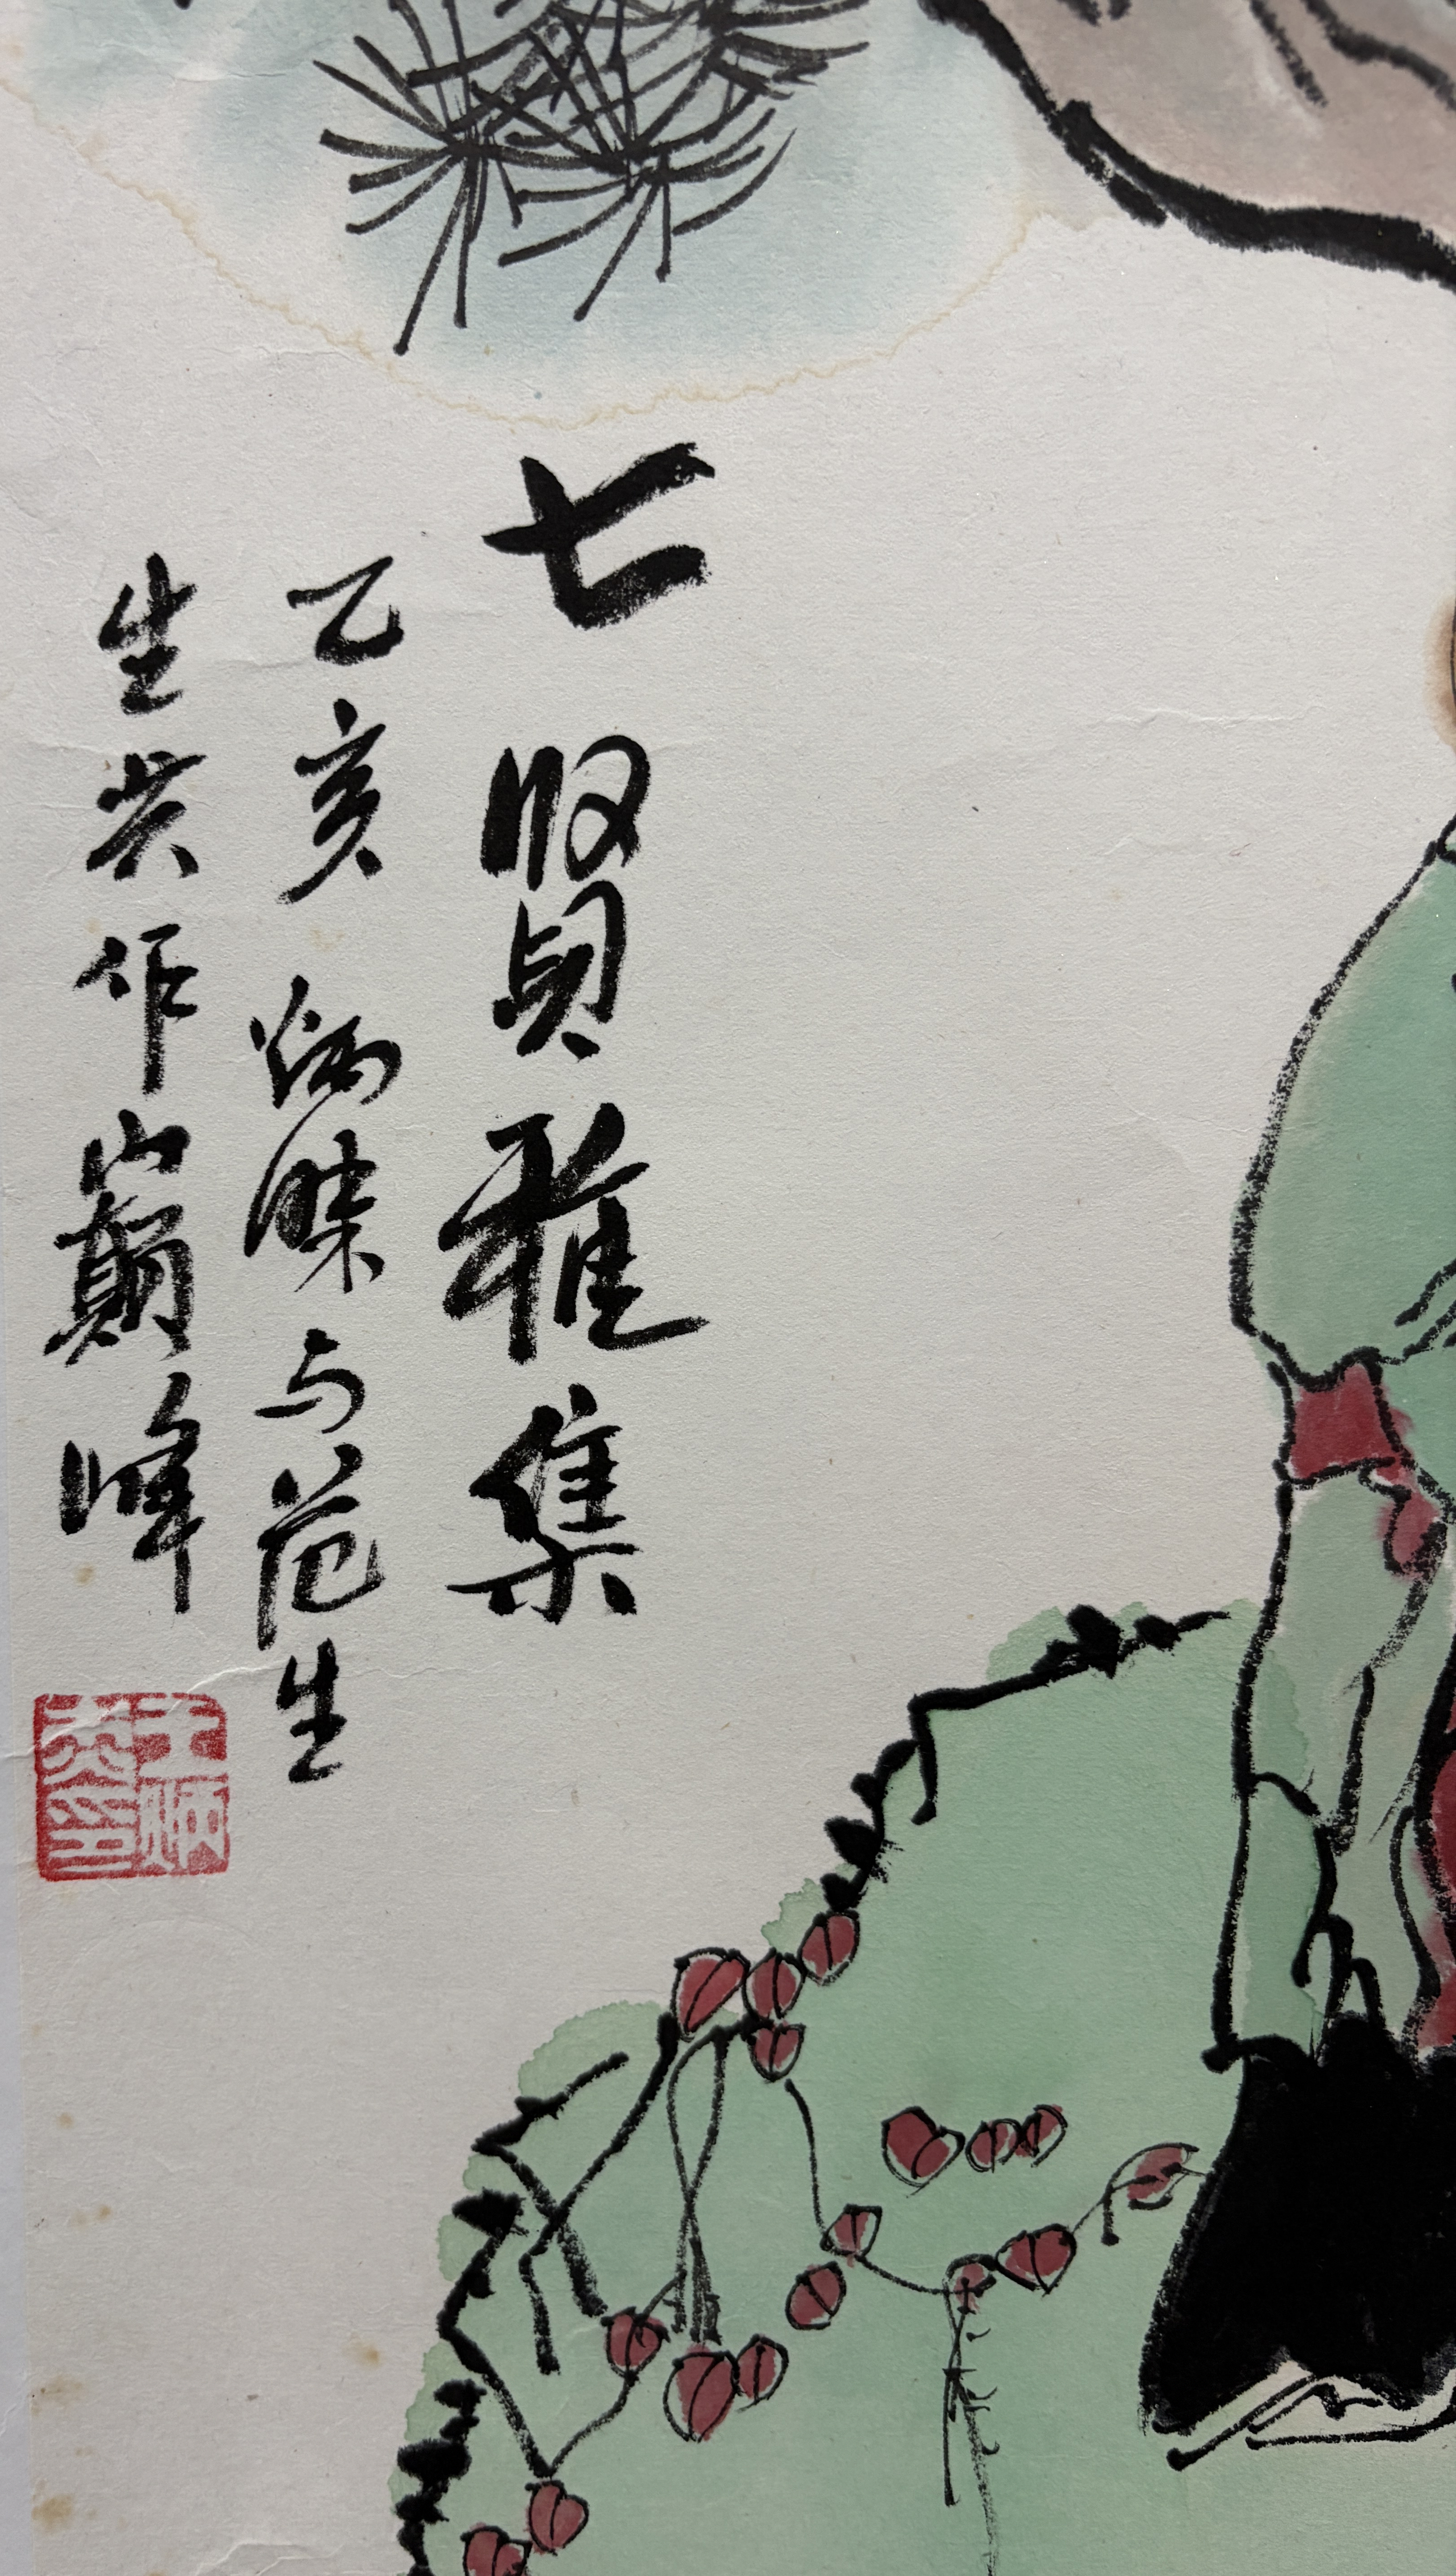 七賢雅集
乙亥炳傑与范生
生共作巔峰
王炳炎印